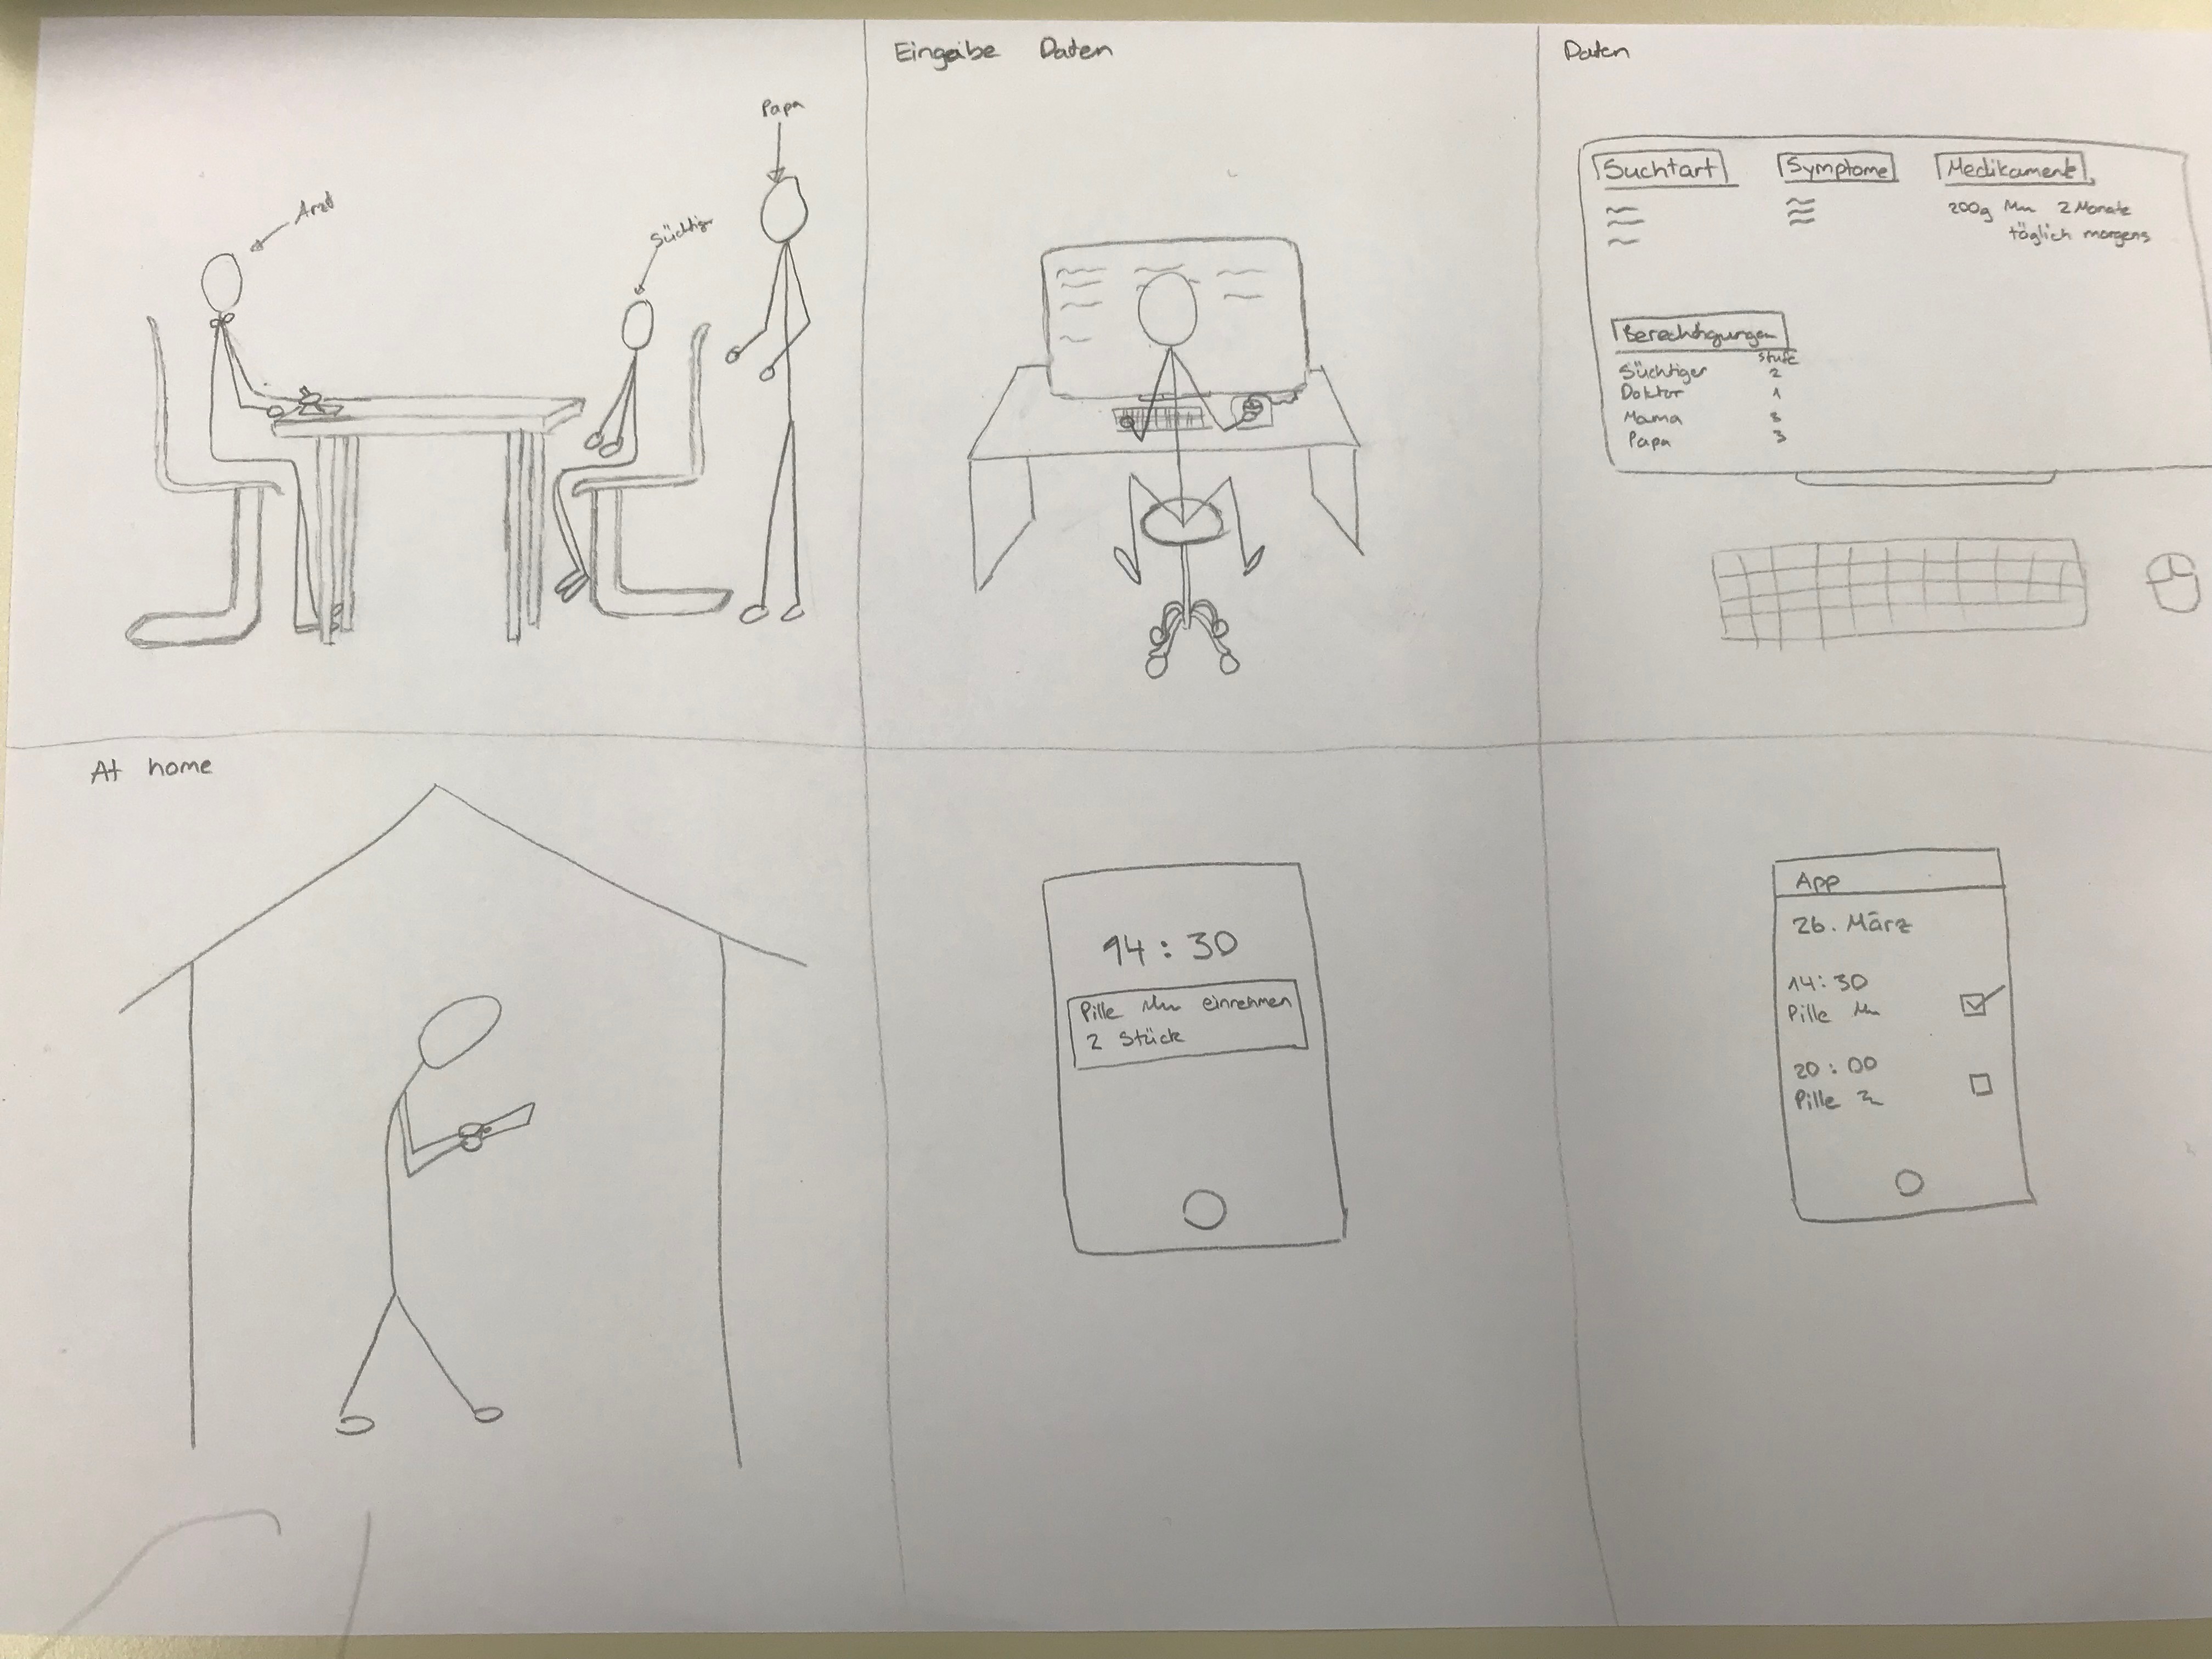 Arzt
Süchtiger
Papa
Eingabe Daten
Daten
Suchtart
Symptome
Medikament
200g 2 Monate
täglich morgens
Berechtigungen
Stufe
Süchtiger 2
Doktor 1
Mama 3
Papa 3
At home
14:30
Pille einnehmen
2 Stück
App
26. März
14:30
Pille
20:00
Pille